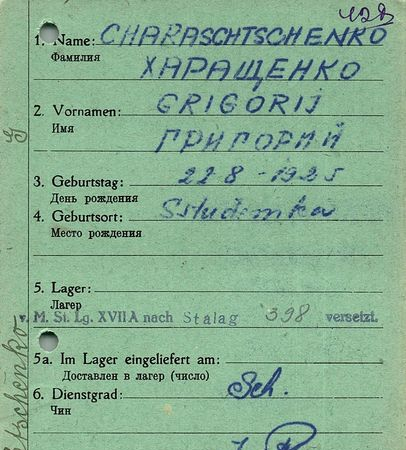 128
1. Name: CHARASCHTSCHENKO
Фамилия
ХАРАЩЕНКО
2. Vornamen: GRIGORIJ
Имя
ГРИГОРИЙ
3. Geburtstag: 22 8 - 1925
День рождения
4. Geburtsort: Studenka
Место рождения
5. Lager:
Лагер
v. M. St. Lg. XVII A nach Stalag 398 versetzt.
5a. Im Lager eingeliefert am:
Доставлен в лагер (число)
6. Dienstgrad: Sch.
Чин